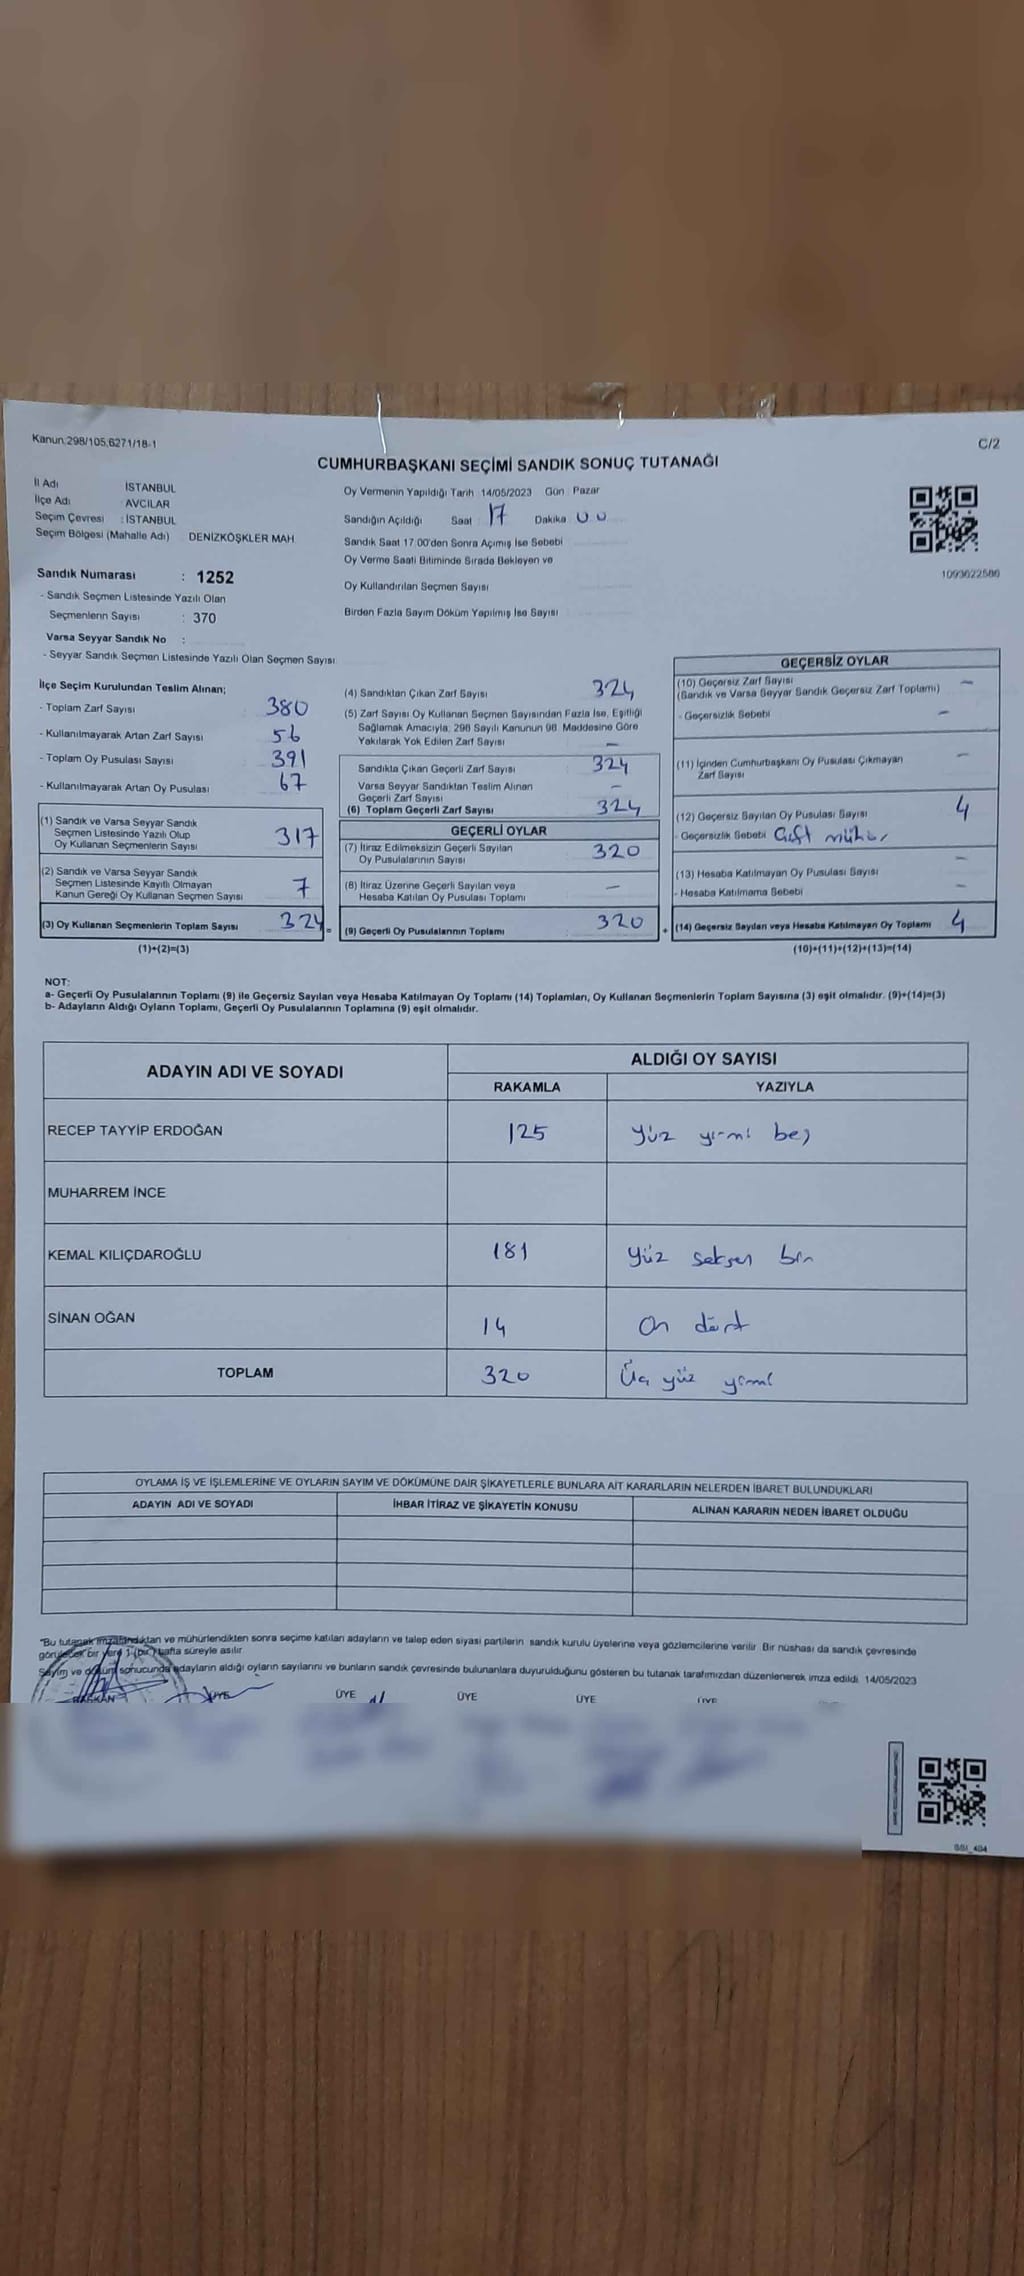 Kanun:298/105,6271/18-1
C/2
CUMHURBAŞKANI SEÇİMİ SANDIK SONUÇ TUTANAĞI
İl Adı İSTANBUL
İlçe Adı : AVCILAR
Seçim Çevresi : İSTANBUL
Seçim Bölgesi (Mahalle Adı) DENİZKÖŞKLER MAH
Sandık Numarası : 1252
- Sandık Seçmen Listesinde Yazılı Olan
Seçmenlerin Sayısı : 370
Varsa Seyyar Sandık No :
- Seyyar Sandık Seçmen Listesinde Yazılı Olan Seçmen Sayısı:
Oy Vermenin Yapıldığı Tarih 14/05/2023 Gün : Pazar
Sandığın Açıldığı Saat : 17 Dakika 00
Sandık Saat 17:00'den Sonra Açmış İse Sebebi
Oy Verme Saati Bitiminde Sırada Bekleyen ve
Oy Kullandırılan Seçmen Sayısı
Birden Fazla Sayım Döküm Yapılmış İse Sayısı
1093622586
İlçe Seçim Kurulundan Teslim Alınan;
- Toplam Zarf Sayısı 380
- Kullanılmayarak Artan Zarf Sayısı 56
- Toplam Oy Pusulası Sayısı 391
- Kullanılmayarak Artan Oy Pusulası 67
(1) Sandık ve Varsa Seyyar Sandık
Seçmen Listesinde Yazılı Olup
Oy Kullanan Seçmenlerin Sayısı 317
(2) Sandık ve Varsa Seyyar Sandık
Seçmen Listesinde Kayıtlı Olmayan
Kanun Gereği Oy Kullanan Seçmen Sayısı 7
(3) Oy Kullanan Seçmenlerin Toplam Sayısı 324 =
(1)+(2)=(3)
(4) Sandıktan Çıkan Zarf Sayısı 324
(5) Zarf Sayısı Oy Kullanan Seçmen Sayısından Fazla İse, Eşitliği
Sağlamak Amacıyla, 298 Sayılı Kanunun 98. Maddesine Göre
Yakılarak Yok Edilen Zarf Sayısı —
Sandıkta Çıkan Geçerli Zarf Sayısı 324
Varsa Seyyar Sandıktan Teslim Alınan
Geçerli Zarf Sayısı —
(6) Toplam Geçerli Zarf Sayısı 324
GEÇERLİ OYLAR
(7) İtiraz Edilmeksizin Geçerli Sayılan
Oy Pusulalarının Sayısı 320
(8) İtiraz Üzerine Geçerli Sayılan veya
Hesaba Katılan Oy Pusulası Toplamı —
(9) Geçerli Oy Pusulalarının Toplamı 320 +
GEÇERSİZ OYLAR
(10) Geçersiz Zarf Sayısı
(Sandık ve Varsa Seyyar Sandık Geçersiz Zarf Toplamı) —
- Geçersizlik Sebebi —
(11) İçinden Cumhurbaşkanı Oy Pusulası Çıkmayan
Zarf Sayısı —
(12) Geçersiz Sayılan Oy Pusulası Sayısı 4
- Geçersizlik Sebebi Çift mühür
(13) Hesaba Katılmayan Oy Pusulası Sayısı —
- Hesaba Katılmama Sebebi —
(14) Geçersiz Sayılan veya Hesaba Katılmayan Oy Toplamı 4
(10)+(11)+(12)+(13)=(14)
NOT:
a- Geçerli Oy Pusulalarının Toplamı (9) ile Geçersiz Sayılan veya Hesaba Katılmayan Oy Toplamı (14) Toplamları, Oy Kullanan Seçmenlerin Toplam Sayısına (3) eşit olmalıdır. (9)+(14)=(3)
b- Adayların Aldığı Oyların Toplamı, Geçerli Oy Pusulalarının Toplamına (9) eşit olmalıdır.
ADAYIN ADI VE SOYADI ALDIĞI OY SAYISI
RAKAMLA YAZIYLA
RECEP TAYYİP ERDOĞAN 125 Yüz yirmi beş
MUHARREM İNCE
KEMAL KILIÇDAROĞLU 181 Yüz seksen bir
SİNAN OĞAN 14 On dört
TOPLAM 320 Üç yüz yirmi
OYLAMA İŞ VE İŞLEMLERİNE VE OYLARIN SAYIM VE DÖKÜMÜNE DAİR ŞİKAYETLERLE BUNLARA AİT KARARLARIN NELERDEN İBARET BULUNDUKLARI
ADAYIN ADI VE SOYADI İHBAR İTİRAZ VE ŞİKAYETİN KONUSU ALINAN KARARIN NEDEN İBARET OLDUĞU
"Bu tutanak imzalandıktan ve mühürlendikten sonra seçime katılan adayların ve talep eden siyasi partilerin sandık kurulu üyelerine veya gözlemcilerine verilir. Bir nüshası da sandık çevresinde
görülecek bir yere 1 (bir) hafta süreyle asılır.
Sayım ve döküm sonucunda adayların aldığı oyların sayılarını ve bunların sandık çevresinde bulunanlara duyurulduğunu gösteren bu tutanak tarafımızdan düzenlenerek imza edildi. 14/05/2023
BAŞKAN ÜYE ÜYE ÜYE ÜYE ÜYE